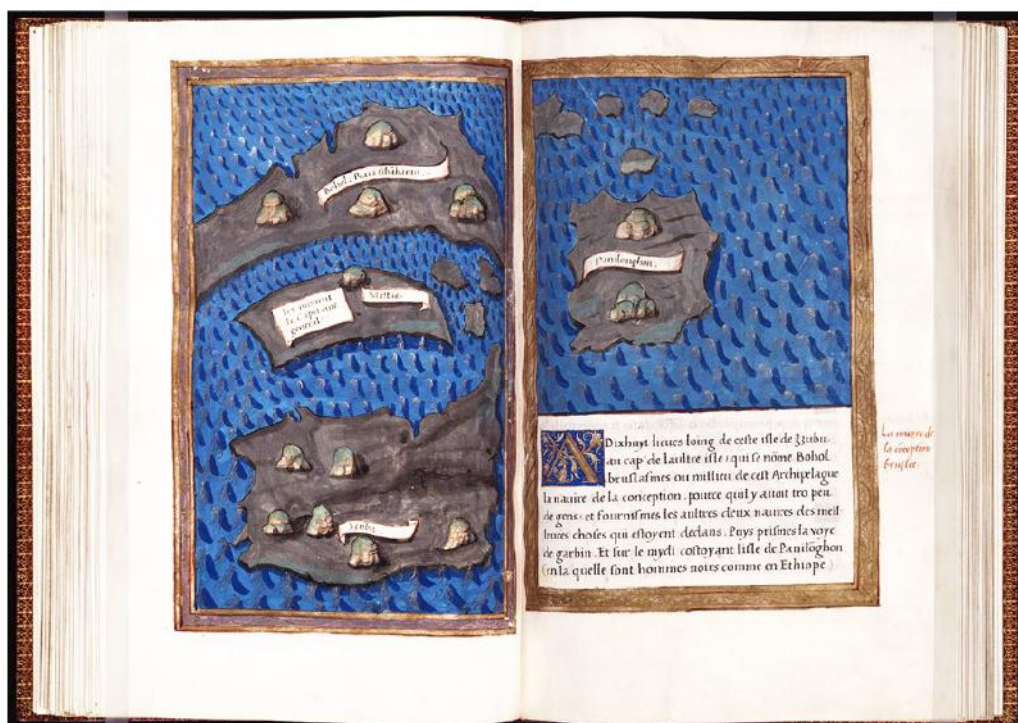 Bohol.
Icy mourut
le Capitaine
general
Zzubu
Paniloghon.
A Dixhuyt lieues loing de ceste isle de Zzubu.
au cap de laultre isle, qui se nõme Bohol
bruslasmes ou millieu de cest Archipelague
la nauire de la conception, pource quil y auoit tro peu
de gens. et fournismes les aultres deux nauires des meil-
leures choses qui estoyent dedans. Puys prismes la voye
de garbin. Et sur le mydi costoyant lisle de Paniloghon
(en la quelle sont hommes noirs comme en Ethiope)
La nauire de
la cõception
bruslee.